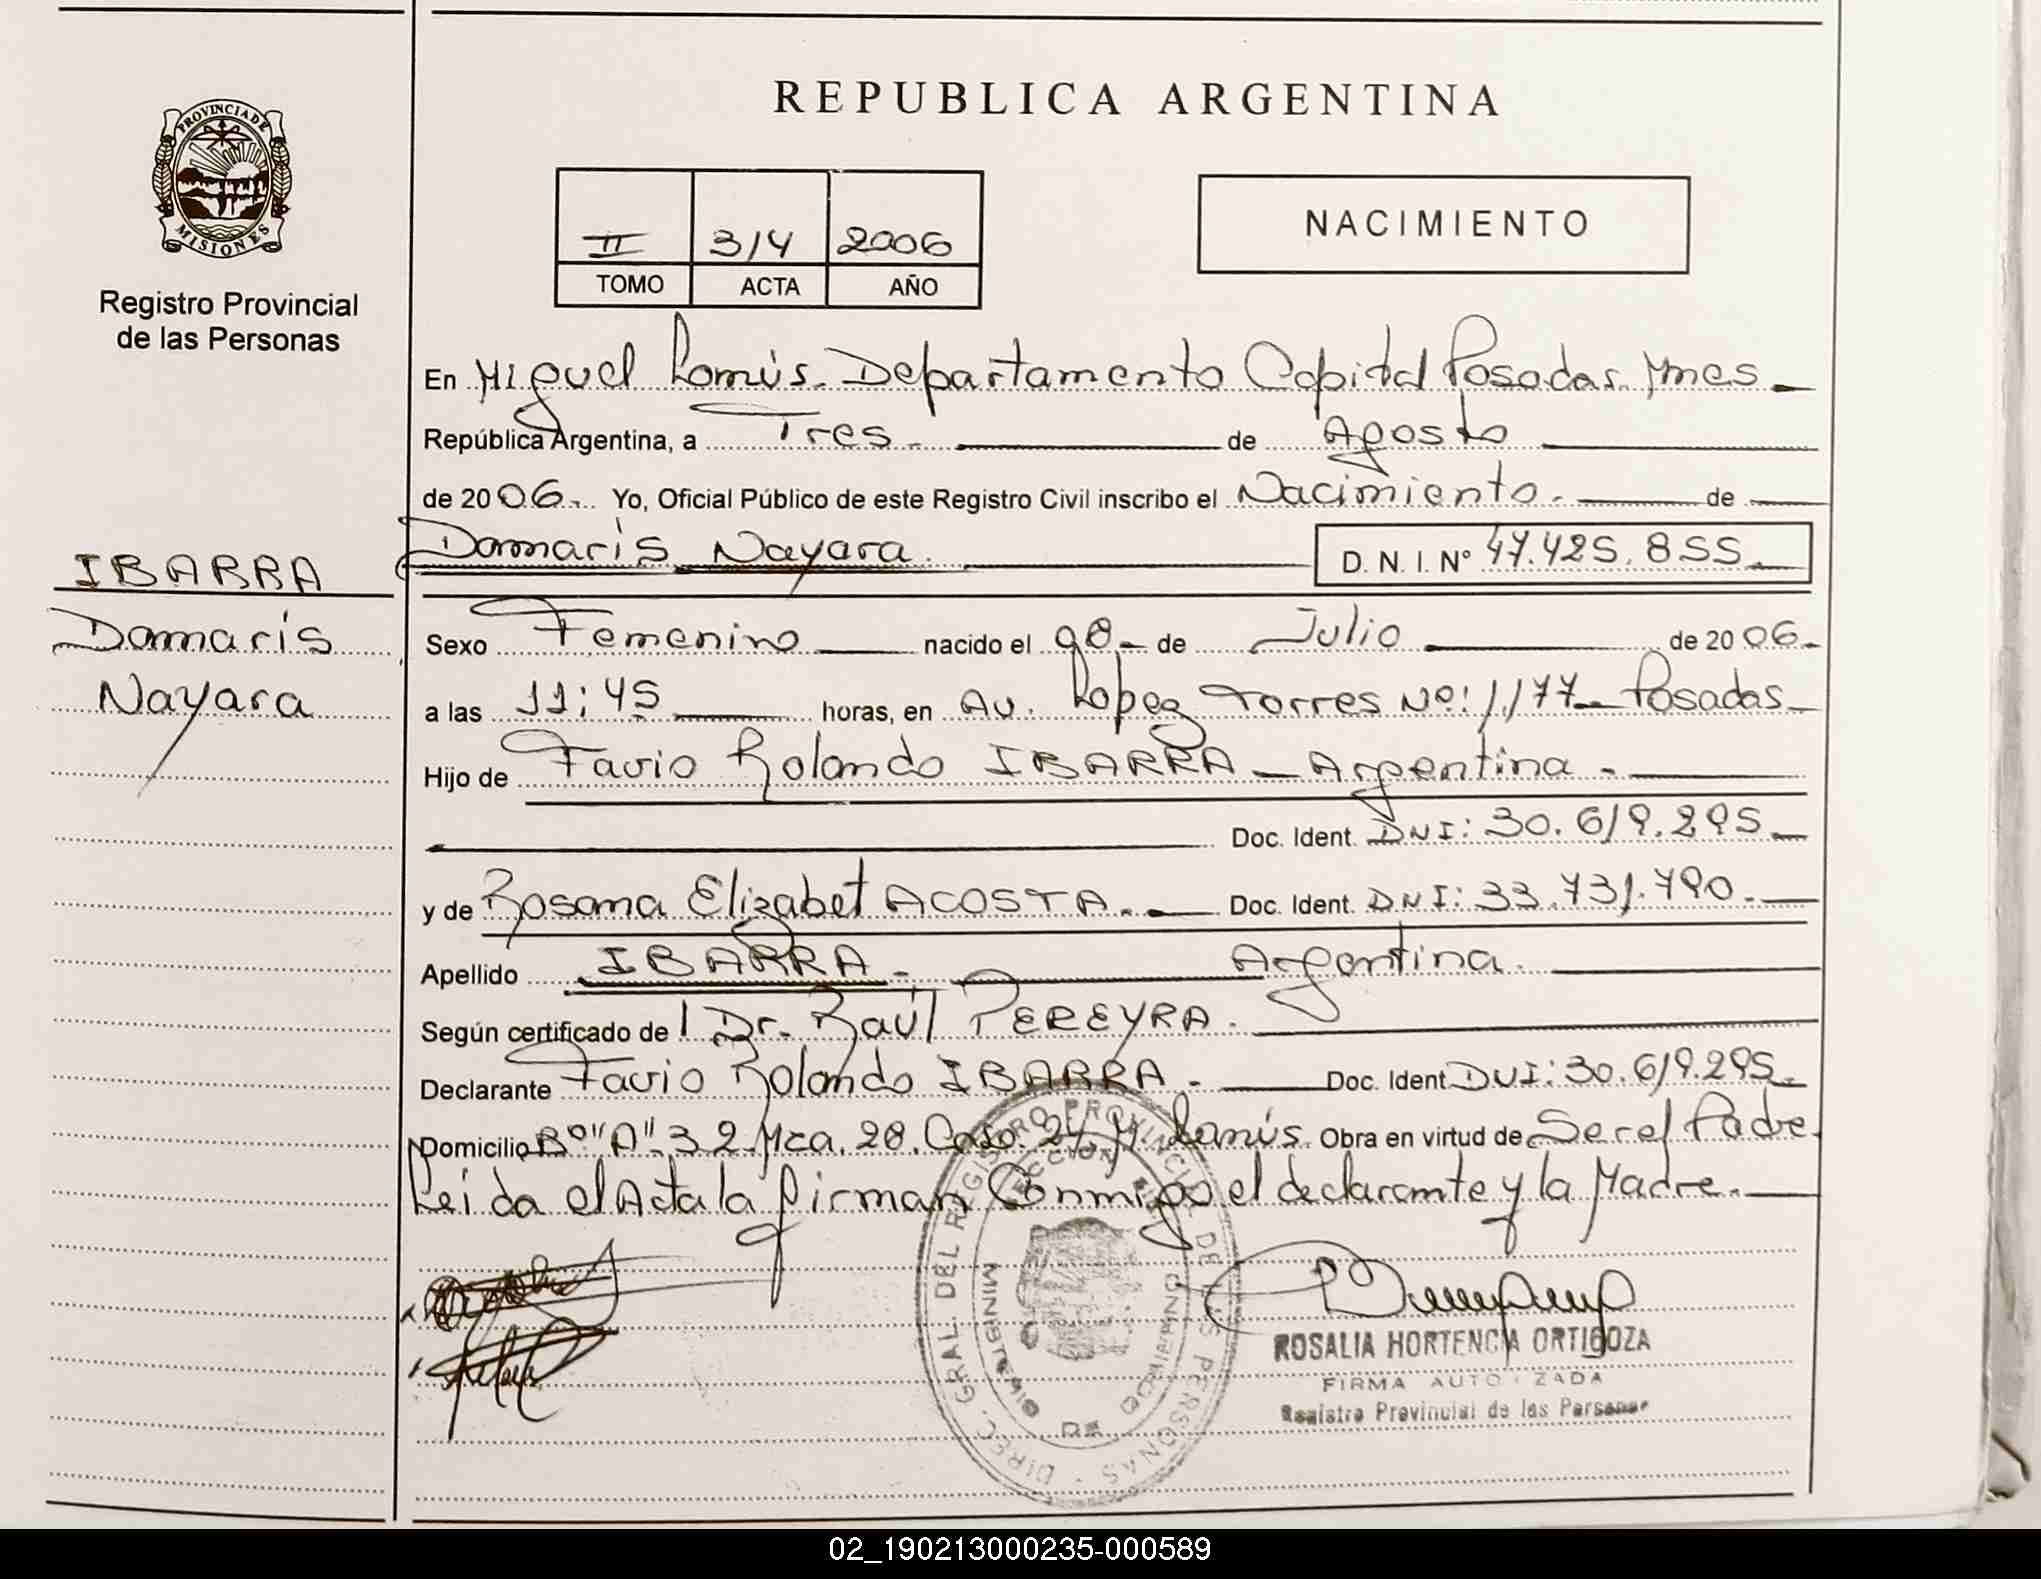 REPUBLICA ARGENTINA
PROVINCIA DE
MISIONES
Registro Provincial
de las Personas
II 314 2006
TOMO ACTA AÑO
NACIMIENTO
En Miguel Lanús. Departamento Capital Posadas. Mnes
República Argentina, a Tres. de Agosto
de 2006. Yo, Oficial Público de este Registro Civil inscribo el Nacimiento. de
Damaris Nayara. D. N. I. N° 47.425.855
IBARRA
Damaris
Nayara
Sexo Femenino nacido el 08 de Julio de 2006
a las 11:45 horas, en Av. Lopez Torres No: 1.177 Posadas
Hijo de Favio Rolando IBARRA Argentina.
Doc. Ident. DNI: 30.619.295
y de Rosana Elizabet ACOSTA. Doc. Ident. DNI: 33.731.790.
Apellido IBARRA. Argentina.
Según certificado de Dr. Raúl PEREYRA.
Declarante Favio Rolando IBARRA. Doc. Ident DNI: 30.619.295
Domicilio Bo "A" 32 Mza. 28. Casa. 24 M. Lanús. Obra en virtud de Ser el Padre
Leida el Acta la firman Conmigo el declarante y la Madre.
DIREC. GRAL. DEL REGISTRO PROVINCIAL DE LAS PERSONAS
MINISTERIO DE GOBIERNO
ROSALIA HORTENCIA ORTIGOZA
FIRMA AUTORIZADA
Registro Provincial de las Personas
02_190213000235-000589